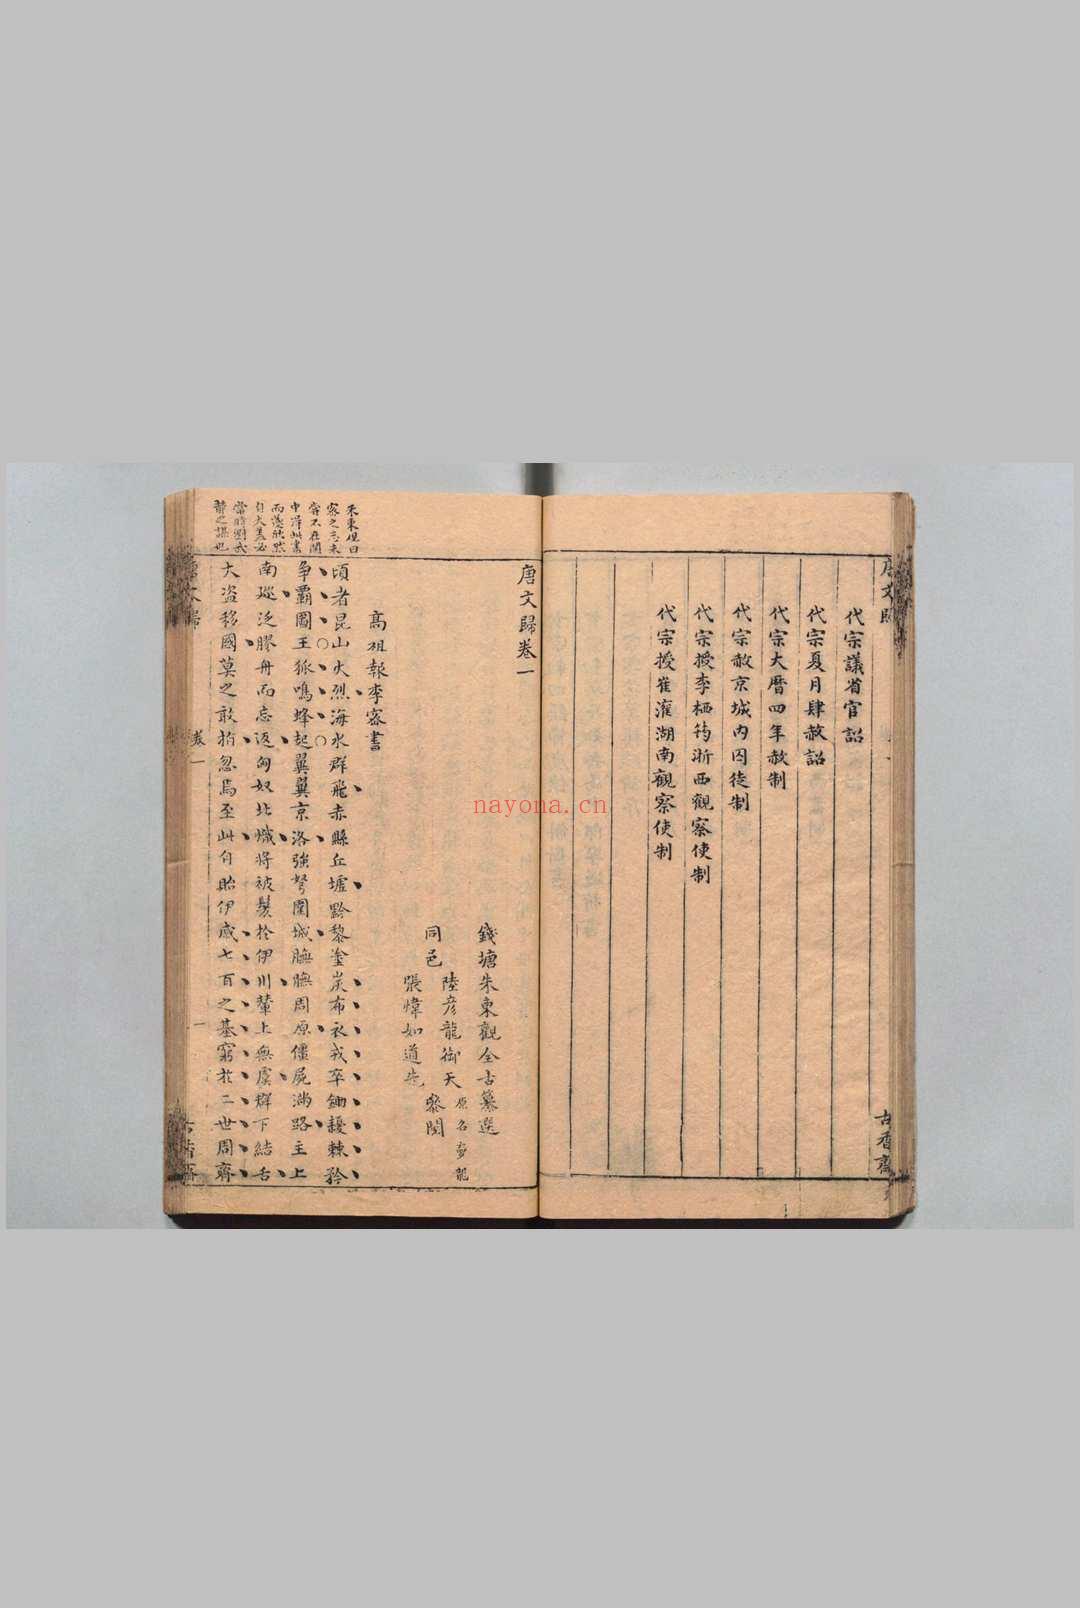 代宗議省官詔
代宗夏月肆赦詔
代宗大曆四年赦制
代宗赦京城內囚徒制
代宗授李栖筠浙西觀察使制
代宗授崔瓘湖南觀察使制
古香齋
唐文歸卷一
錢塘朱東觀全古纂選
同邑
陸彥龍御天
原名夢龍
張煒如道先
叅閱
高祖報李密書
頃者昆山火烈海水群飛赤縣丘墟黔黎塗炭布衣戎卒鋤耰棘矜
爭霸圖王狐鳴蜂起翼翼京洛強弩圍城膴膴周原僵屍滿路主上
南廵泛膠舟而忘返匈奴北熾將被髮於伊川輦上無虞群下結舌
大盗移國莫之敢指忽焉至此自貽伊慼七百之基窮於二世周齊
朱東觀曰
密之志未
甞不在關
中得此書
而遂欣然
自大蓋必
當時劉文
卷一
一
nayona.cn